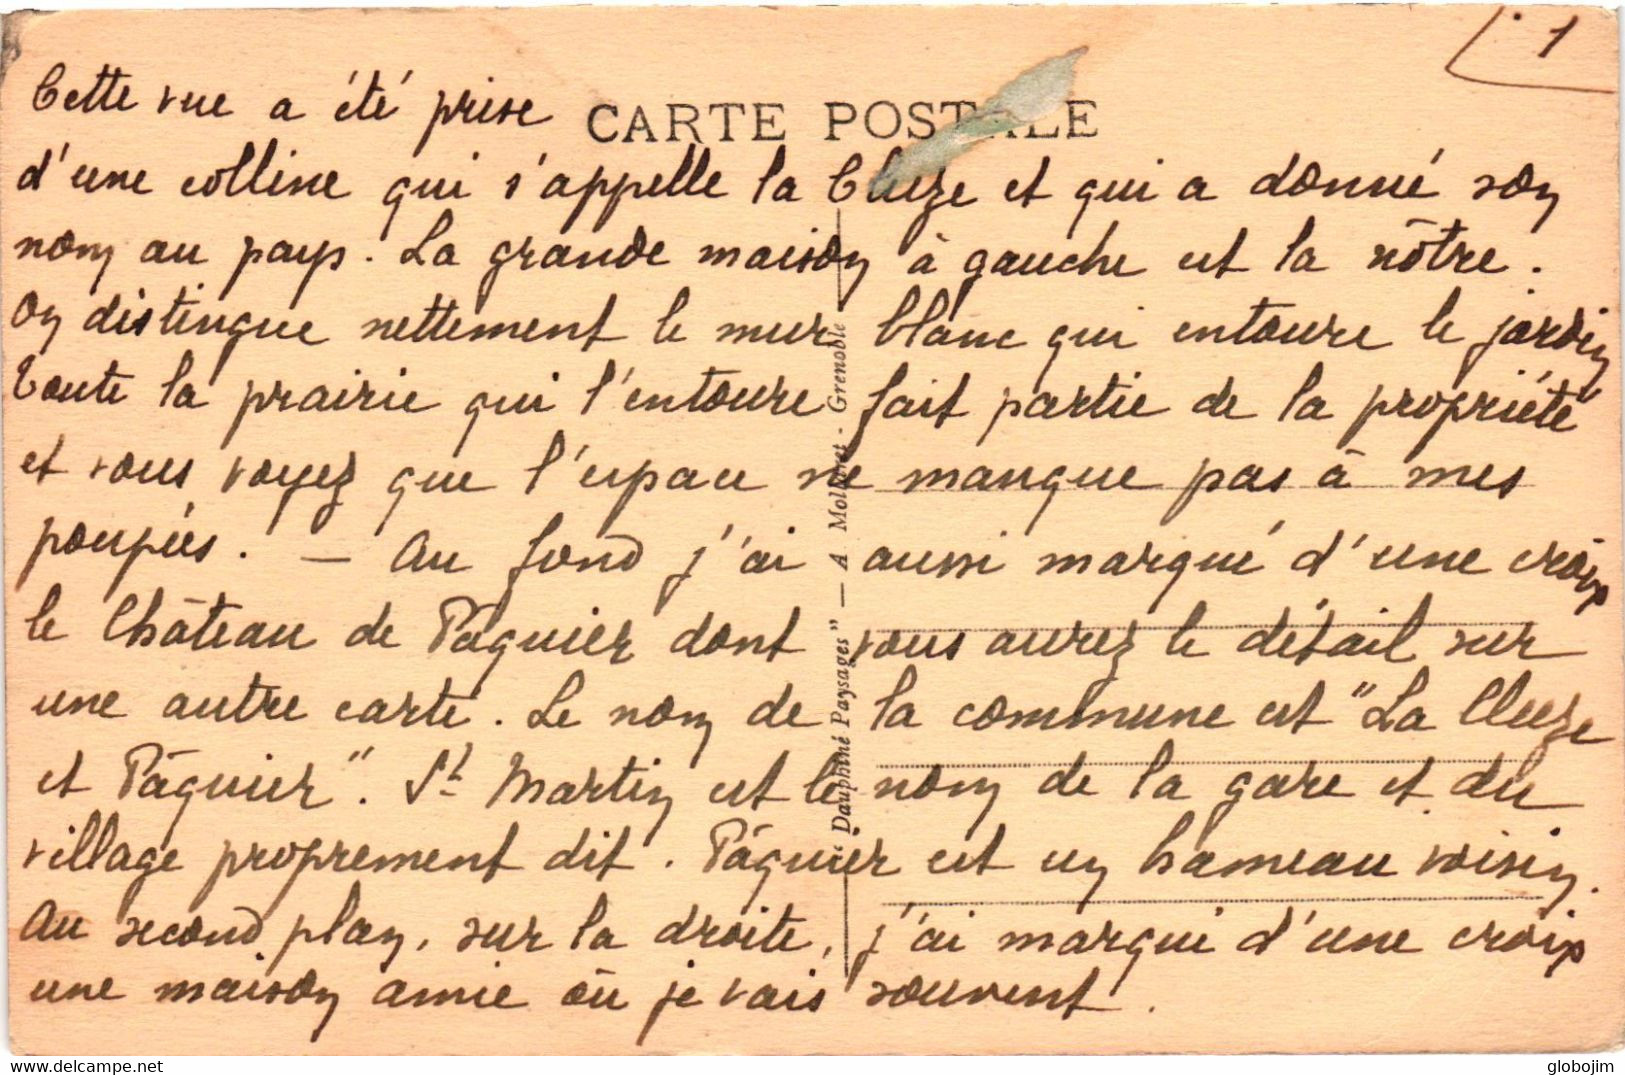 1
Cette vue a été prise
CARTE POSTALE
d'une colline qui s'appelle la Cluze et qui a donné son
nom au pays. La grande maison à gauche est la nôtre.
On distingue nettement le mur blanc qui entoure le jardin
Toute la prairie qui l'entoure fait partie de la propriété
et vous voyez que l'espace ne manque pas à mes
poupées. — Au fond j'ai aussi marqué d'une croix
le Château de Pâquier dont vous aurez le détail sur
une autre carte. Le nom de la commune est "La Cluze
et Pâquier". St Martin est le nom de la gare et du
village proprement dit. Pâquier est un hameau voisin.
Au second plan, sur la droite, j'ai marqué d'une croix
une maison amie où je vais souvent.
"Dauphiné Paysages" — A Mollaret - Grenoble
globojim